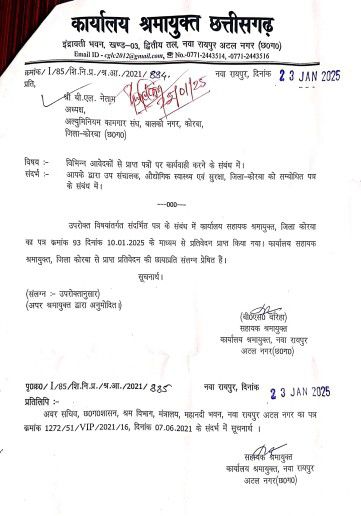 कार्यालय श्रमायुक्त छत्तीसगढ़
इंद्रावती भवन, खण्ड-03, द्वितीय तल, नवा रायपुर अटल नगर (छ0ग0)
Email ID - cglc2012@gmail.com, ☎ No.-0771-2443514, -0771-2443516
क्रमांक/I/85/शि.नि.प्र./श्र.आ./2021/ 884. नवा रायपुर, दिनांक 23 JAN 2025
प्रति,
श्री बी.एल. नेताम
25/01/25
अध्यक्ष,
अल्युमिनियम कामगार संघ, बालको नगर, कोरबा,
जिला-कोरबा (छ0ग0)
विषय :- विभिन्न आवेदकों से प्राप्त पत्रों पर कार्यवाही करने के संबंध में।
संदर्भ :- आपके द्वारा उप संचालक, औद्योगिक स्वास्थ्य एवं सुरक्षा, जिला-कोरबा को सम्बोधित पत्र
के संबंध में।
---000---
उपरोक्त विषयांतर्गत संदर्भित पत्र के संबंध में कार्यालय सहायक श्रमायुक्त, जिला कोरबा
का पत्र क्रमांक 93 दिनांक 10.01.2025 के माध्यम से प्रतिवेदन प्राप्त किया गया। कार्यालय सहायक
श्रमायुक्त, जिला कोरबा से प्राप्त प्रतिवेदन की छायाप्रति संलग्न प्रेषित है।
सूचनार्थ।
(संलग्न :- उपरोक्तानुसार)
(अपर श्रमायुक्त द्वारा अनुमोदित)
(बी0एस0 बरिहा)
सहायक श्रमायुक्त
कार्यालय श्रमायुक्त, नवा रायपुर
अटल नगर(छ0ग0)
पृ0क्र0/I/85/शि.नि.प्र./श्र.आ./2021/ 885 नवा रायपुर, दिनांक 23 JAN 2025
प्रतिलिपि :-
अवर सचिव, छ0ग0शासन, श्रम विभाग, मंत्रालय, महानदी भवन, नवा रायपुर अटल नगर का पत्र
क्रमांक 1272/51/VIP/2021/16, दिनांक 07.06.2021 के संदर्भ में सूचनार्थ ।
सहायक श्रमायुक्त
कार्यालय श्रमायुक्त, नवा रायपुर
अटल नगर(छ0ग0)